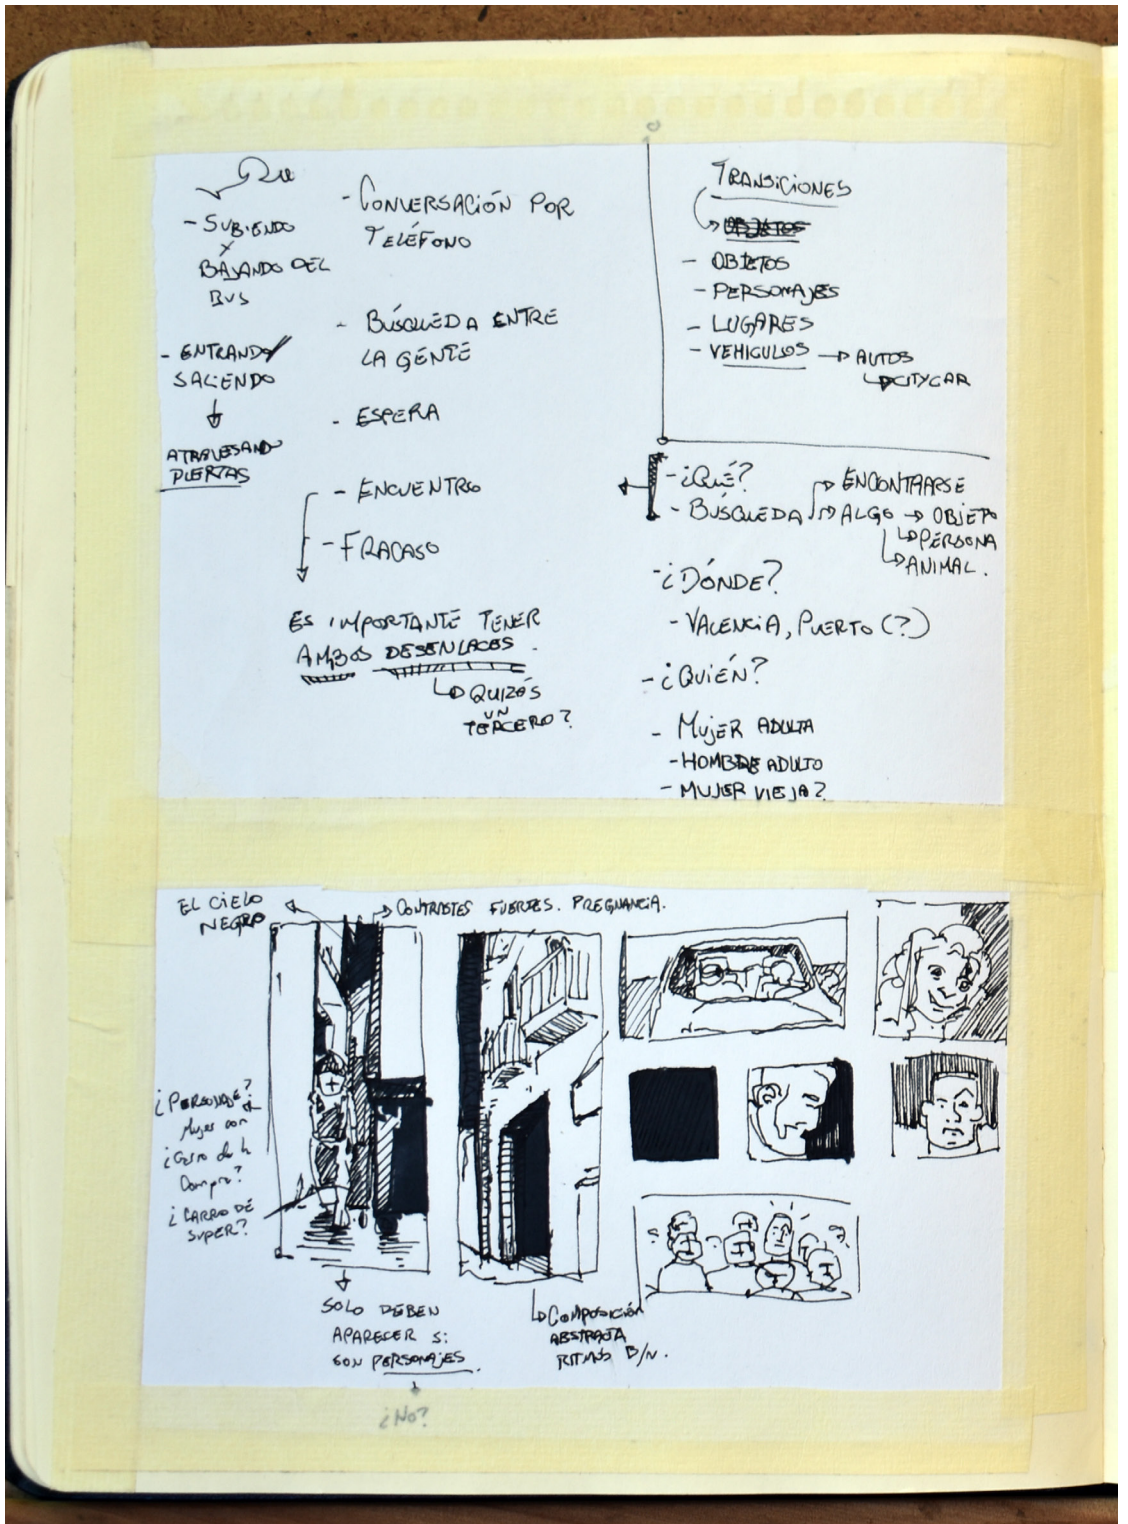 - SUBIENDO
Y
BAJANDO DEL
BUS
- ENTRANDO/
SALIENDO
ATRAVESANDO
PUERTAS
- CONVERSACIÓN POR
TELÉFONO
- BÚSQUEDA ENTRE
LA GENTE
- ESPERA
- ENCUENTRO
- FRACASO
ES IMPORTANTE TENER
AMBOS DESENLACES.
QUIZÁS
UN
TERCERO?
TRANSICIONES
OBJETOS
- OBJETOS
- PERSONAJES
- LUGARES
- VEHICULOS → AUTOS
CITYCAR
- ¿QUÉ?
- BÚSQUEDA → ENCONTRARSE
→ ALGO → OBJETO
PERSONA
ANIMAL.
- ¿DÓNDE?
- VALENCIA, PUERTO (?)
- ¿QUIÉN?
- MUJER ADULTA
- HOMBRE ADULTO
- MUJER VIEJA?
EL CIELO
NEGRO
CONTRASTES FUERTES. PREGNANCIA.
¿PERSONAJE?
Mujer con
¿Carro de la
Compra?
¿CARRO DE
SUPER?
SOLO DEBEN
APARECER SI
SON PERSONAJES.
¿NO?
COMPOSICIÓN
ABSTRACTA
RITMOS B/N.